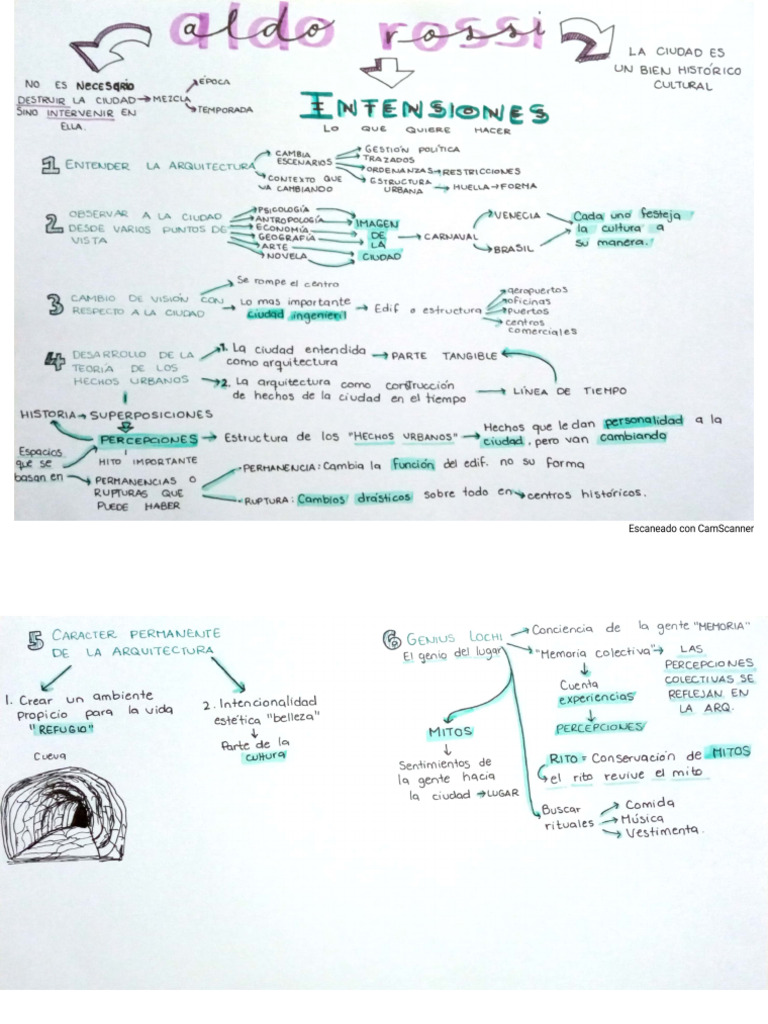 aldo rossi
NO ES NECESARIO
DESTRUIR LA CIUDAD → MEZCLA
SINO INTERVENIR EN
ELLA.
ÉPOCA
TEMPORADA
LA CIUDAD ES
UN BIEN HISTÓRICO
CULTURAL
INTENSIONES
LO QUE QUIERE HACER
1 ENTENDER LA ARQUITECTURA
CAMBIA
ESCENARIOS
GESTIÓN POLÍTICA
TRAZADOS
ORDENANZAS → RESTRICCIONES
CONTEXTO QUE
VA CAMBIANDO
ESTRUCTURA
URBANA → HUELLA → FORMA
2 OBSERVAR A LA CIUDAD
DESDE VARIOS PUNTOS DE
VISTA
PSICOLOGÍA
ANTROPOLOGÍA
ECONOMÍA
GEOGRAFÍA
ARTE
NOVELA
IMAGEN
DE
LA
CIUDAD
CARNAVAL
VENECIA
BRASIL
Cada uno festeja
la cultura a
su manera.
3 CAMBIO DE VISIÓN CON
RESPECTO A LA CIUDAD
Se rompe el centro
Lo mas importante
ciudad ingenieril
Edif o estructura
aeropuertos
oficinas
puertos
centros
comerciales
4 DESARROLLO DE LA
TEORÍA DE LOS
HECHOS URBANOS
1. La ciudad entendida
como arquitectura → PARTE TANGIBLE
2. La arquitectura como construcción
de hechos de la ciudad en el tiempo → LÍNEA DE TIEMPO
HISTORIA → SUPERPOSICIONES
PERCEPCIONES → Estructura de los "HECHOS URBANOS" →
Hechos que le dan personalidad a la
ciudad, pero van cambiando
Espacios
que se
basan en
HITO IMPORTANTE
PERMANENCIAS O
RUPTURAS QUE
PUEDE HABER
PERMANENCIA: Cambia la función del edif. no su forma
RUPTURA: Cambios drásticos sobre todo en → centros históricos.
Escaneado con CamScanner
5 CARACTER PERMANENTE
DE LA ARQUITECTURA
1. Crear un ambiente
propicio para la vida
"REFUGIO"
Cueva
2. Intencionalidad
estética "belleza"
Parte de la
cultura
6 GENIUS LOCHI
El genio del lugar
Conciencia de la gente "MEMORIA"
"Memoria colectiva" →
LAS
PERCEPCIONES
COLECTIVAS SE
REFLEJAN EN
LA ARQ.
Cuenta
experiencias
PERCEPCIONES
MITOS
Sentimientos de
la gente hacia
la ciudad → LUGAR
RITO = Conservación de MITOS
el rito revive el mito
Buscar
rituales
Comida
Música
Vestimenta.